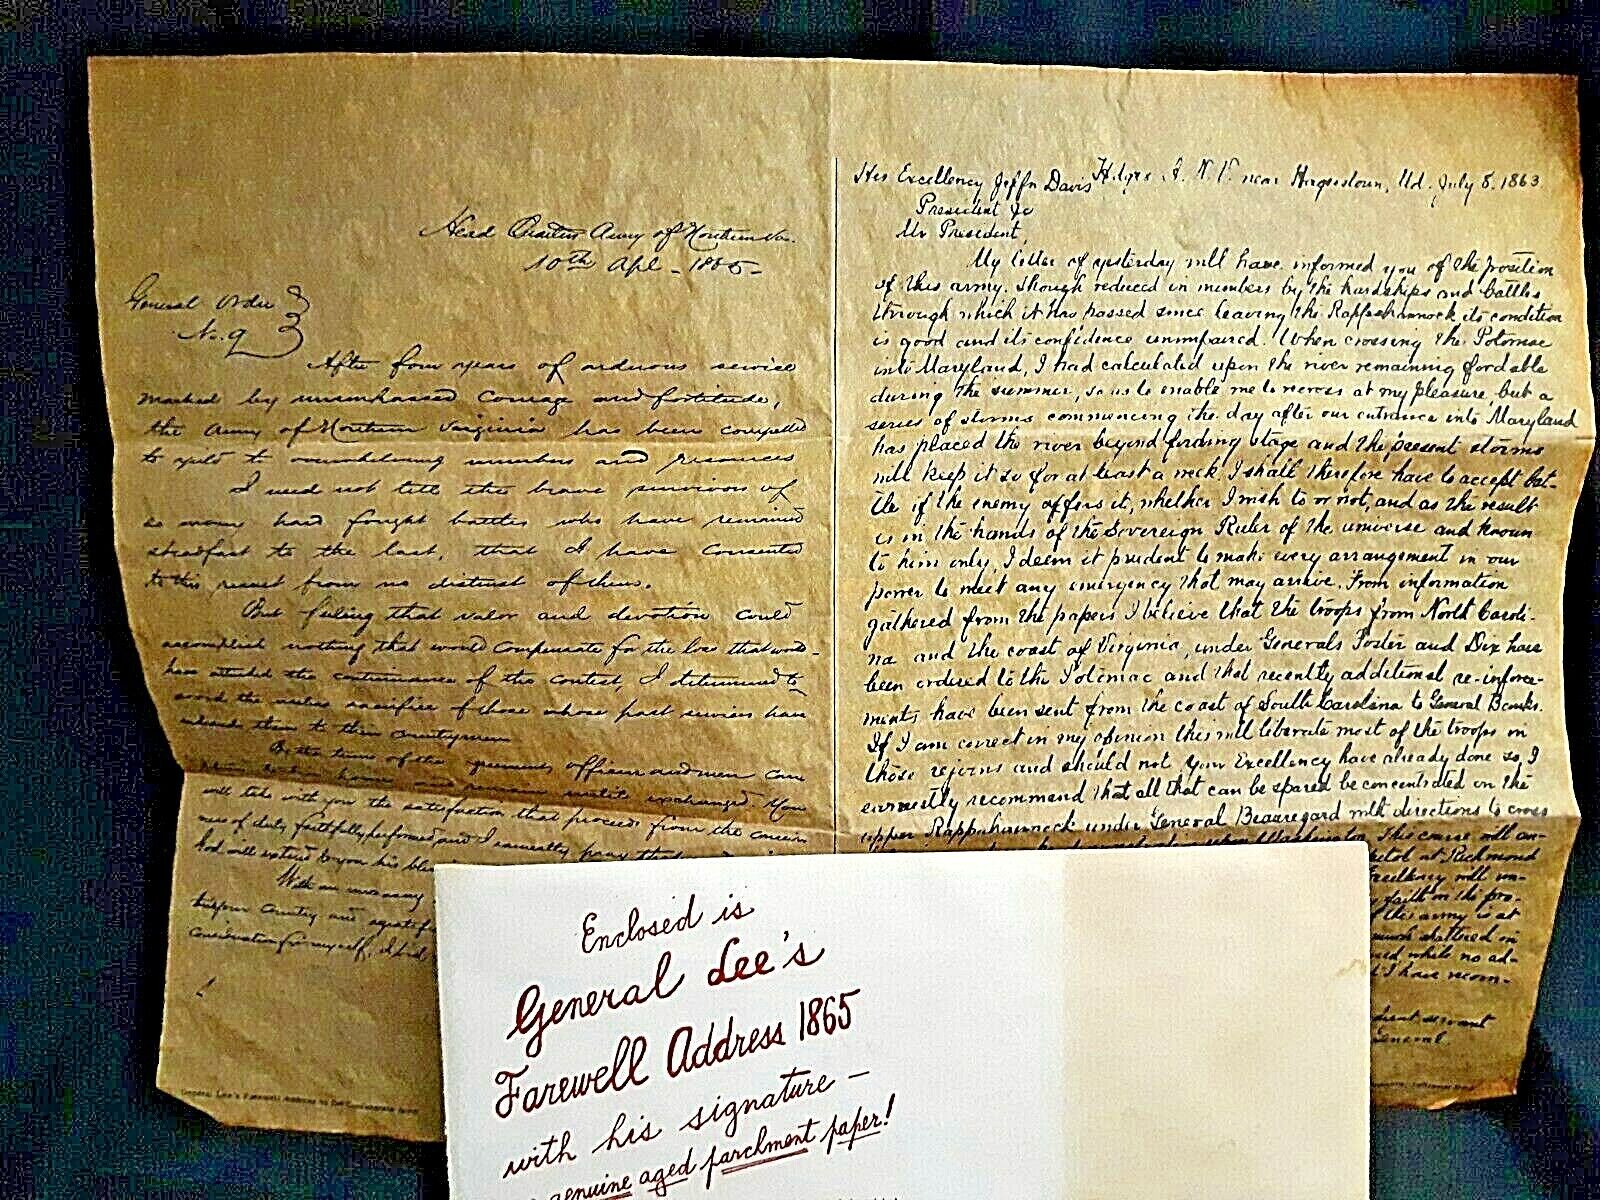 Head Quarters Army of Northern Va.
10th Apl - 1865 -
General Order
No. 9
After four years of arduous service
marked by unsurpassed courage and fortitude,
the Army of Northern Virginia has been compelled
to yield to overwhelming numbers and resources
I need not tell the brave survivors of
so many hard fought battles who have remained
steadfast to the last, that I have consented
to this result from no distrust of them.
But feeling that valor and devotion could
accomplish nothing that would compensate for the loss that would
have attended the continuance of the contest, I determined to
avoid the useless sacrifice of those whose past services have
endeared them to their countrymen
By the terms of the agreement officers and men can
return to their homes and remain until exchanged. You
will take with you the satisfaction that proceeds from the conscious
ness of duty faithfully performed and I earnestly pray that
God will extend to you his
With an unceasing
to your Country and
consideration for myself, I bid
His Excellency Jeff'n Davis Hdqrs A. N. V. near Hagerstown, Md. July 8. 1863
President &c
Mr President,
My letter of yesterday will have informed you of the position
of this army. Though reduced in numbers by the hardships and battles
through which it has passed since leaving the Rappahannock its condition
is good and its confidence unimpaired. When crossing the Potomac
into Maryland, I had calculated upon the river remaining fordable
during the summer, so as to enable me to recross at my pleasure, but a
series of storms commencing the day after our entrance into Maryland
has placed the river beyond fording stage and the present storms
will keep it so for at least a week. I shall therefore have to accept bat-
tle if the enemy offers it, whether I wish to or not, and as the result
is in the hands of the Sovereign Ruler of the universe and known
to him only, I deem it prudent to make every arrangement in our
power to meet any emergency that may arrive. From information
gathered from the papers I believe that the troops from North Caroli-
na and the coast of Virginia, under Generals Foster and Dix have
been ordered to the Potomac and that recently additional re-inforce-
ments have been sent from the coast of South Carolina to General Banks.
If I am correct in my opinion this will liberate most of the troops in
those rejoins and should not your Excellency have already done so, I
earnestly recommend that all that can be spared be concentrated on the
upper Rappahannock under General Beauregard with directions to cross
upon Washington. This course will an-
at Richmond
Excellency will un-
faith in the pro-
of this army is at
much shattered in
while no ad-
I have recom-
servant
General
General Lee's Farewell Address to the Confederate Army
Enclosed is
General Lee's
Farewell Address 1865
with his signature -
genuine aged parchment paper!